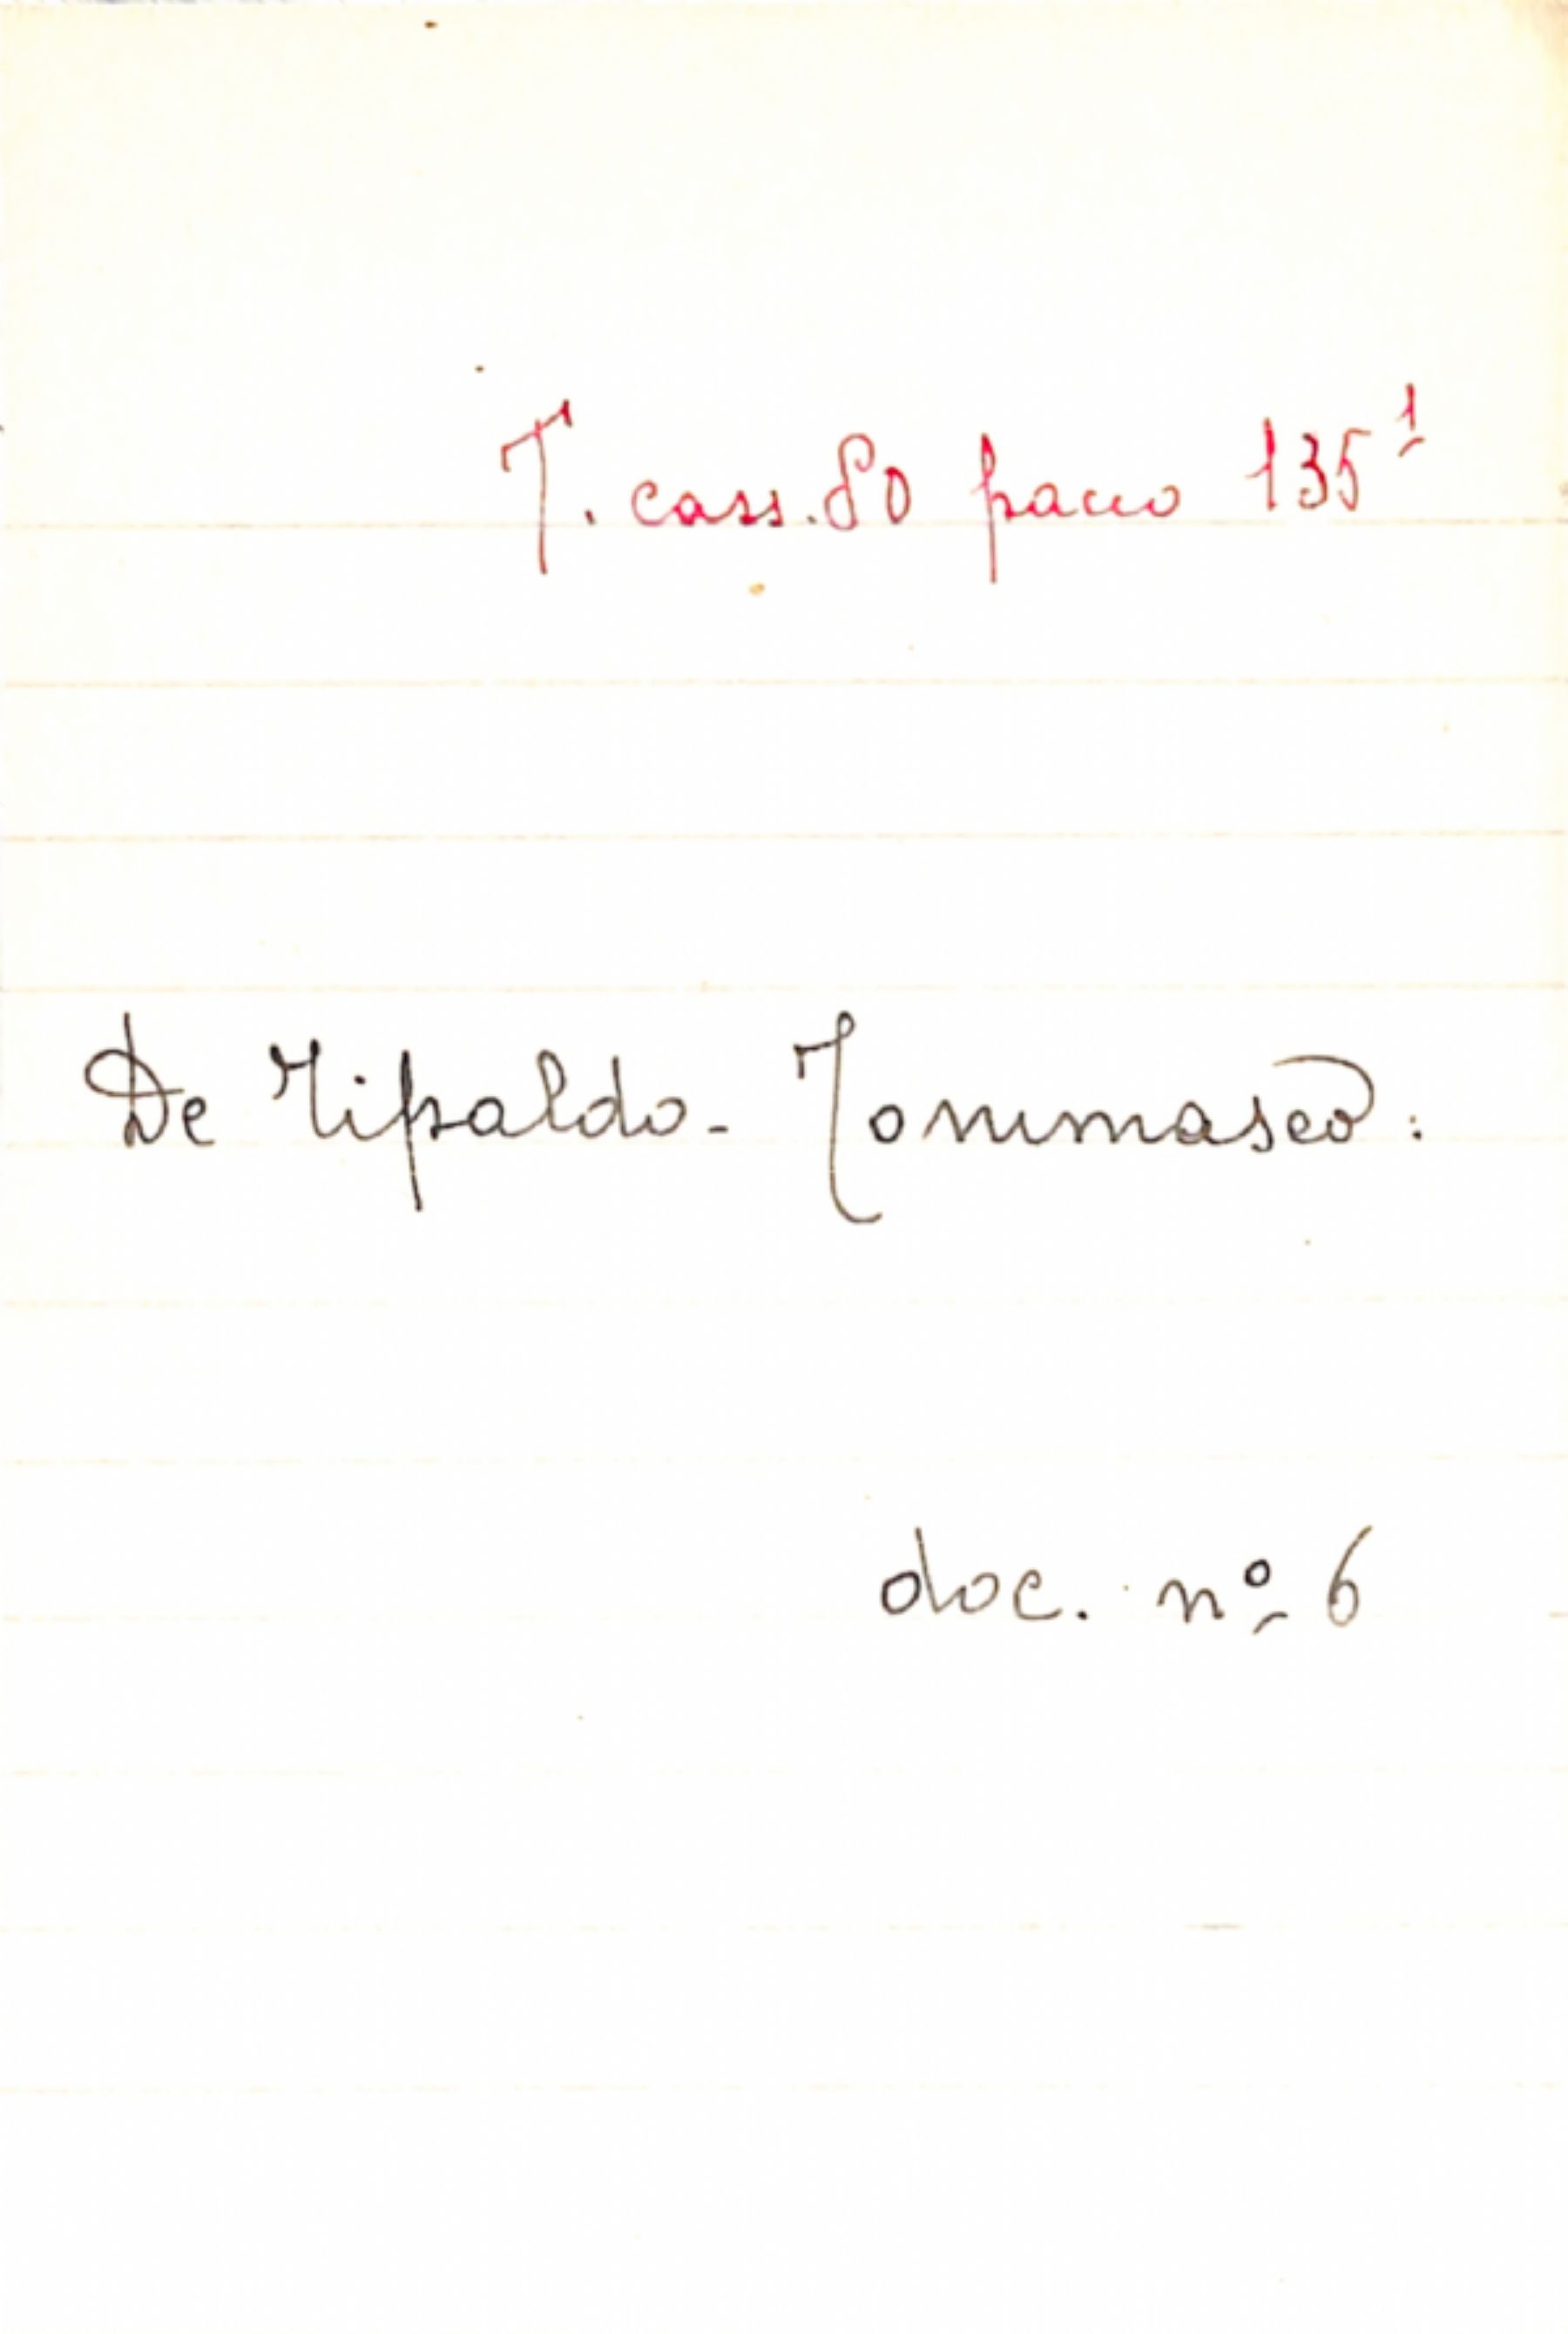 T. cass. 80 pacco 135¹
De Tipaldo - Tommaseo.
doc. nº 6